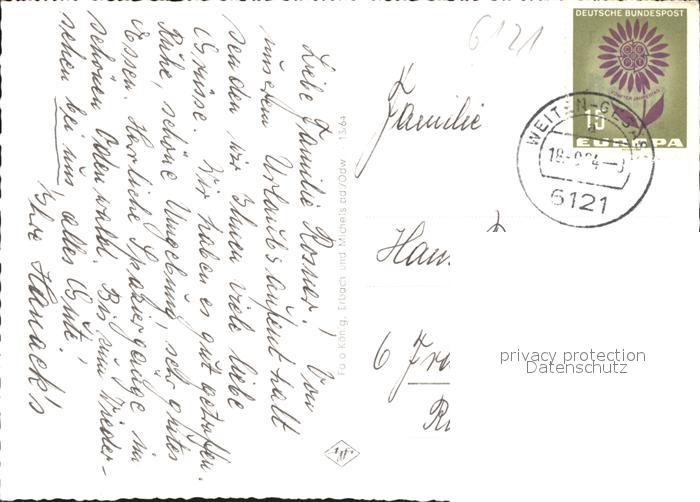 Liebe Familie Rosner! Von
unserem Urlaubsaufenthalt
senden wir Ihnen viele liebe
Grüsse. Wir haben es gut getroffen.
Ruhe, schöne Umgebung, sehr gutes
Essen. Herrliche Spaziergänge im
schönen Odenwald. Bis zum Wieder-
sehen bei uns, alles Gute!
Ihre Hanack's
Foto König, Erbach und Michelstadt/Odw. 13/64
Agfa
6121
DEUTSCHE BUNDESPOST
15
EUROPA
WEITEN-GESÄSS
6121
Familie
Han
6 Fra
privacy protection
Datenschutz